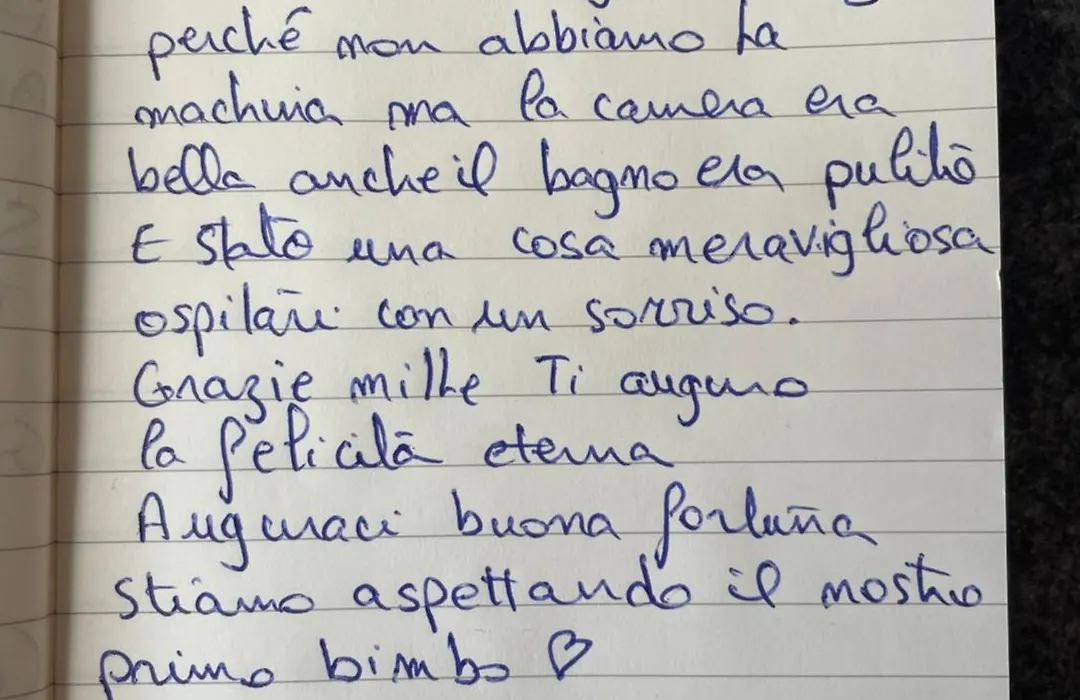 perché non abbiamo la
machina ma la camera era
bella anche il bagno era pulito
E stato una cosa meravigliosa
ospitarci con un sorriso.
Grazie mille Ti auguro
la felicità eterna
Auguraci buona fortuna
stiamo aspettando il nostro
primo bimbo ♡